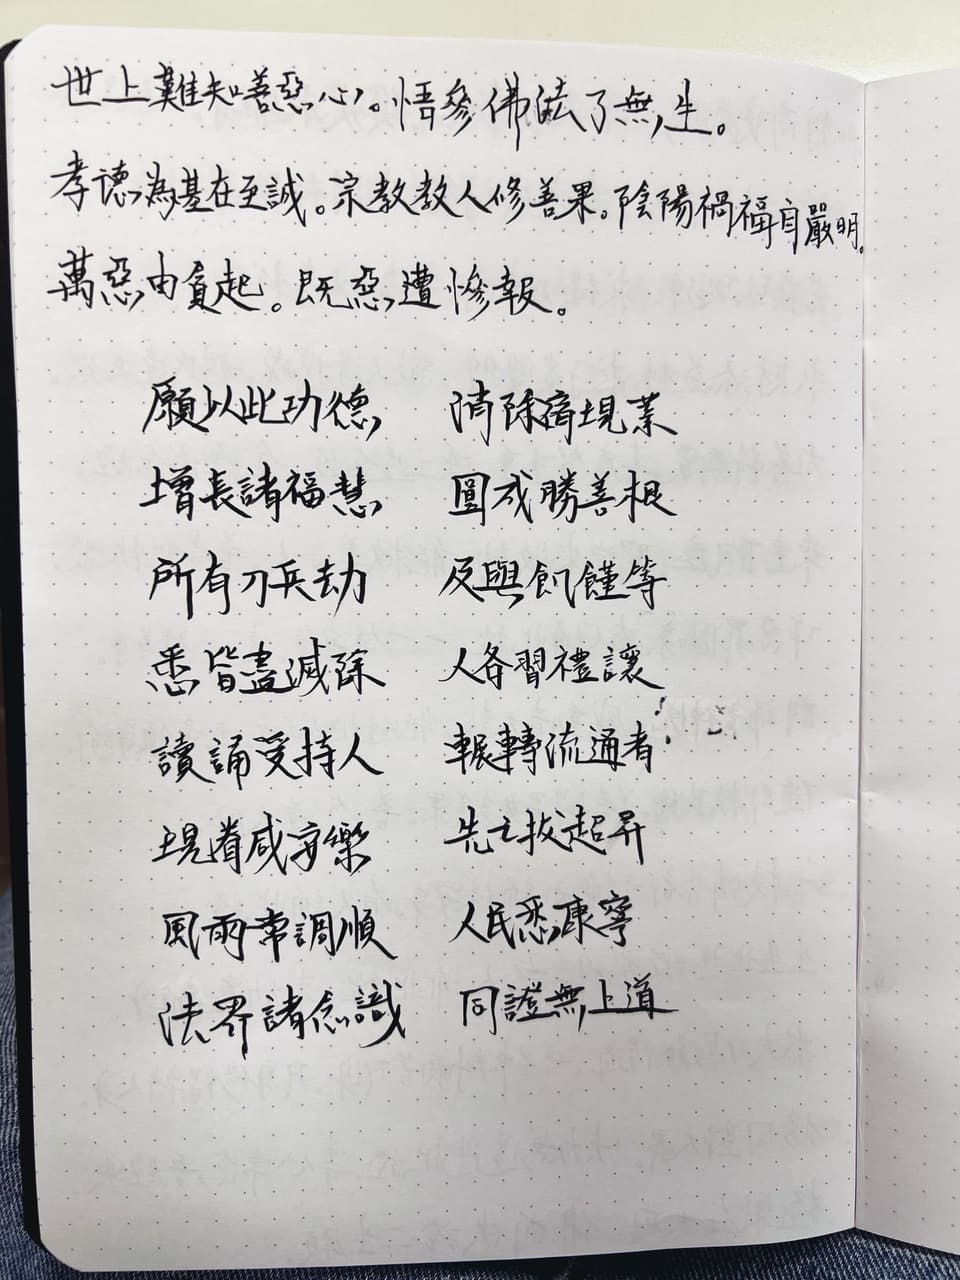 世上難知善惡心。悟參佛法了無生。
孝德為基在至誠。宗教教人修善果。陰陽禍福自嚴明。
萬惡由貪起。既惡遭慘報。
願以此功德 消除宿現業
增長諸福慧 圓成勝善根
所有刀兵劫 及與飢饉等
悉皆盡滅除 人各習禮讓
讀誦受持人 輾轉流通者
現眷咸安樂 先亡拔超昇
風雨常調順 人民悉康寧
法界諸念識 同證無上道